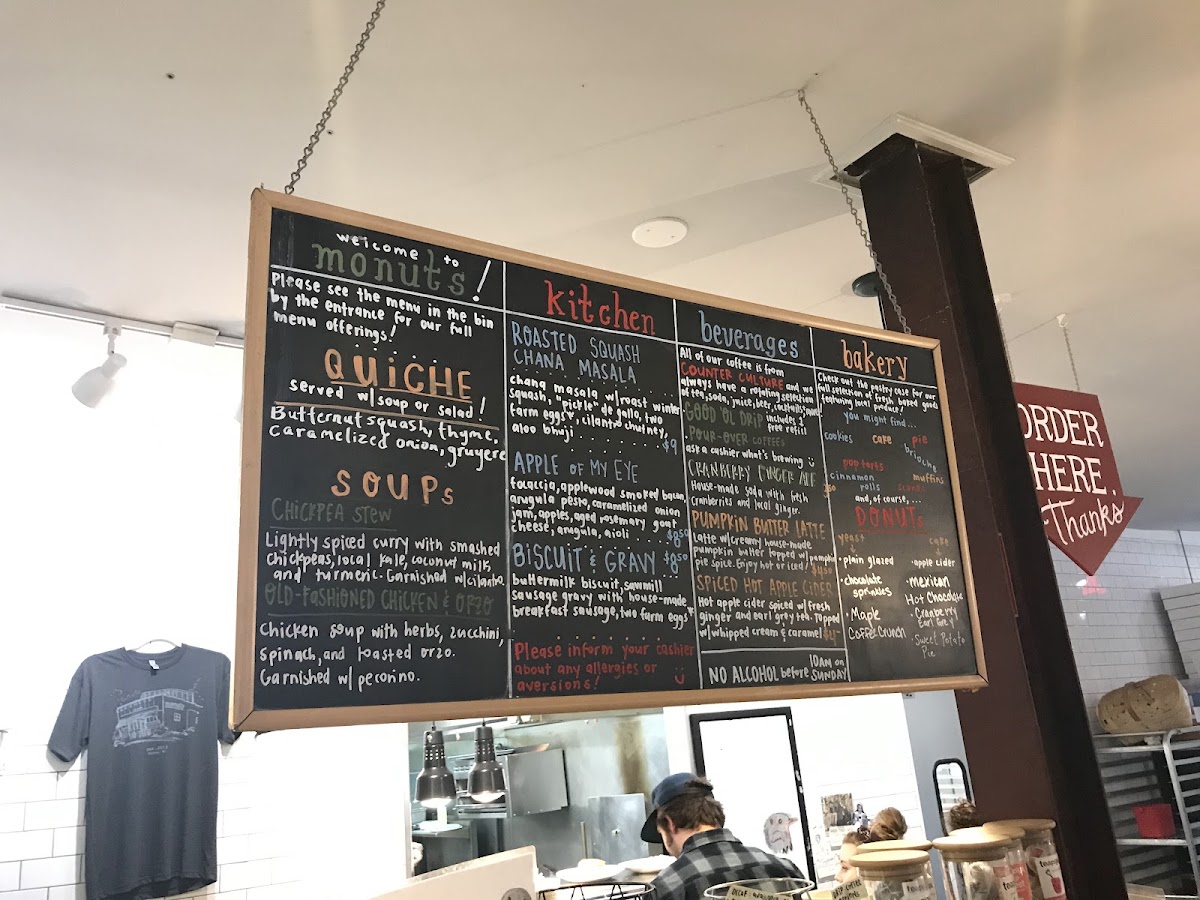 welcome to
monuts!
Please see the menu in the bin
by the entrance for our full
menu offerings!
QUiCHE
served w/soup or salad!
Butternut squash, thyme,
caramelized onion, gruyere
SOUPs
CHiCKPEA STEW
Lightly spiced curry with smashed
chickpeas, local kale, coconut milk,
and turmeric. Garnished w/cilantro.
OLD-FASHIONED CHICKEN & ORZO
Chicken soup with herbs, zucchini,
spinach, and toasted orzo.
Garnished w/ pecorino.
kitchen
ROASTED SQUASH
CHANA MASALA
chana masala w/roast winter
squash, "pickle" de gallo, two
farm eggs*, cilantro chutney,
aloo bhuji
$9
APPLE OF MY EYE
focaccia, applewood smoked bacon,
arugula pesto, caramelized onion
jam, apples, aged rosemary goat
cheese, arugula, aioli
BiSCUIT & GRAVY $8.50
buttermilk biscuit, sawmill
sausage gravy with house-made
breakfast sausage, two farm eggs*
Please inform your cashier
about any allergies or
aversions!
beverages
All of our coffee is from
COUNTER CULTURE and we
always have a rotating selection
of tea, soda, juice, beer, cocktails, + more!
GOOD OL DRIP includes 1
free refill
POUR-OVER COFFEES
ask a cashier what's brewing
CRANBERRY GINGER ALE
House-made soda with fresh
cranberries and local ginger.
PUMPKIN BUTTER LATTE
Latte w/creamy house-made
pumpkin butter topped w/pumpkin
pie spice. Enjoy hot or iced! $4.50
SPICED HOT APPLE CIDER
Hot apple cider spiced w/fresh
ginger and earl grey tea. Topped
w/whipped cream & caramel $4
NO ALCOHOL before 10AM on
SUNDAY
bakery
Check out the pastry case for our
full selection of fresh baked goods
featuring local produce!
you might find...
cookies cake pie
brioche
pop tarts
cinnamon muffins
rolls scones
and, of course, ...
DONUTs
yeast
• plain glazed
• chocolate
sprinkles
• Maple
Coffee Crunch
cake
• apple cider
• mexican
Hot Chocolate
• Cranberry
Earl Grey
• Sweet Potato
Pie
ORDER
HERE.
Thanks